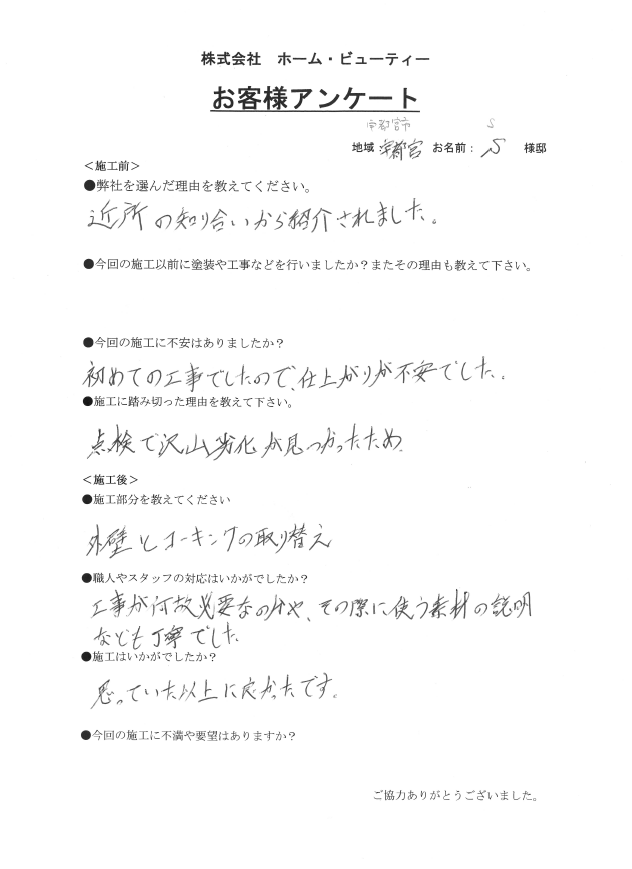 株式会社　ホーム・ビューティー
お客様アンケート
宇都宮市　S
地域 宇都宮 お名前： S 様邸
＜施工前＞
●弊社を選んだ理由を教えてください。
近所の知り合いから紹介されました。
●今回の施工以前に塗装や工事などを行いましたか？またその理由も教えて下さい。
●今回の施工に不安はありましたか？
初めての工事でしたので、仕上がりが不安でした。
●施工に踏み切った理由を教えて下さい。
点検で沢山劣化が見つかったため
＜施工後＞
●施工部分を教えてください
外壁とコーキングの取り替え
●職人やスタッフの対応はいかがでしたか？
工事が何故必要なのかや、その際に使う素材の説明
なども丁寧でした
●施工はいかがでしたか？
思っていた以上に良かったです。
●今回の施工に不満や要望はありますか？
ご協力ありがとうございました。